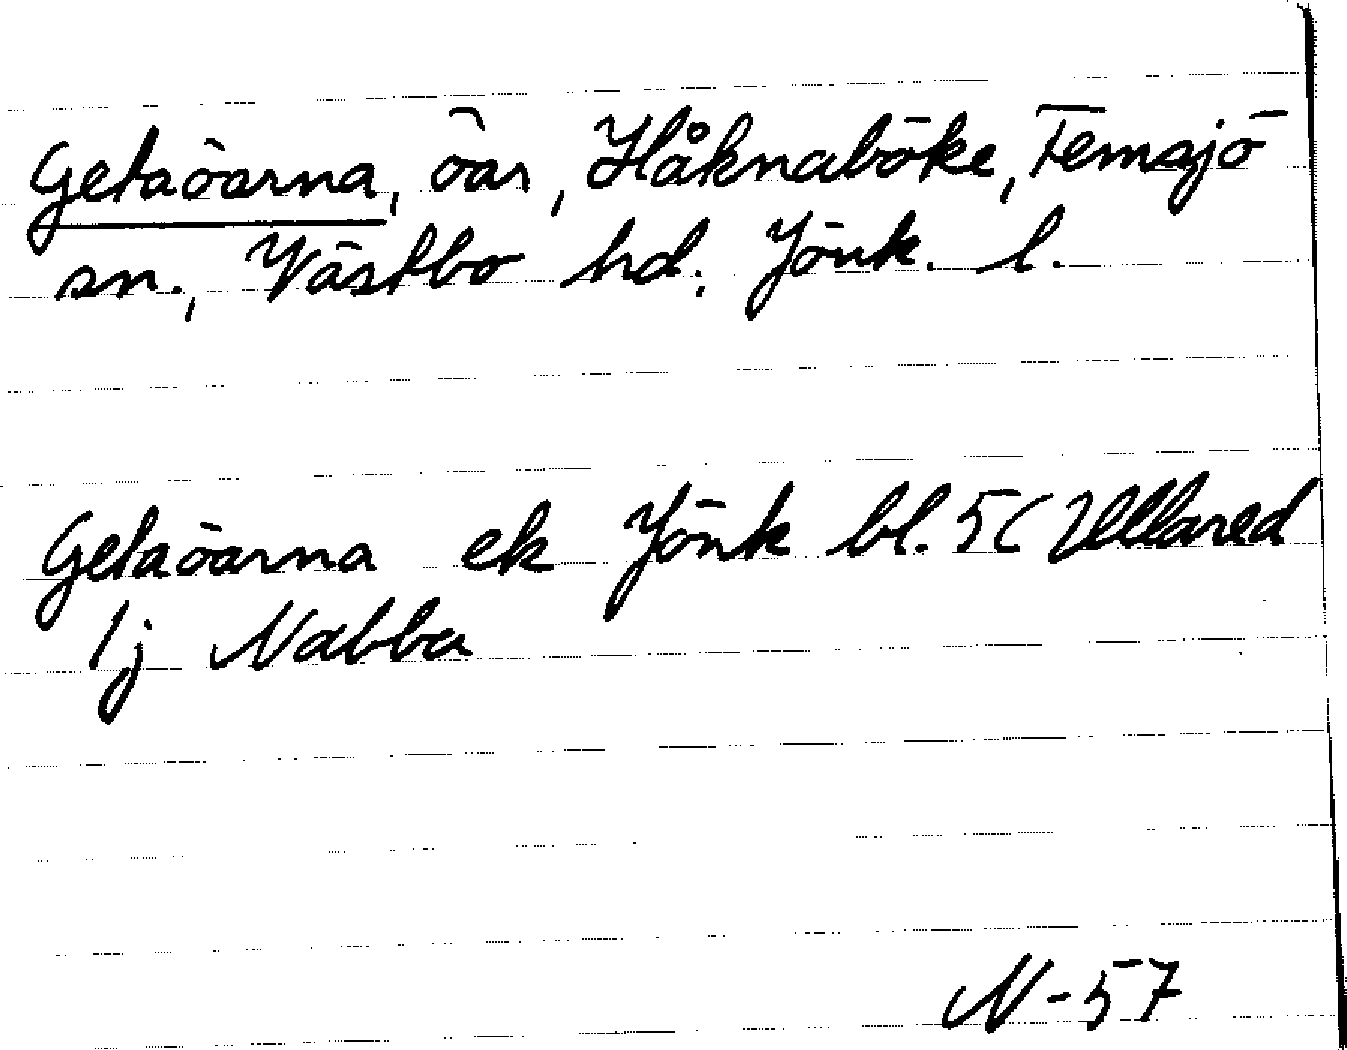 Getaöarna, öar, Håknaböke, Femsjö
sn., Västbo hd. Jönk. l.
Getaöarna ek Jönk bl. 5 (Ullared
lj Nabba
N-57